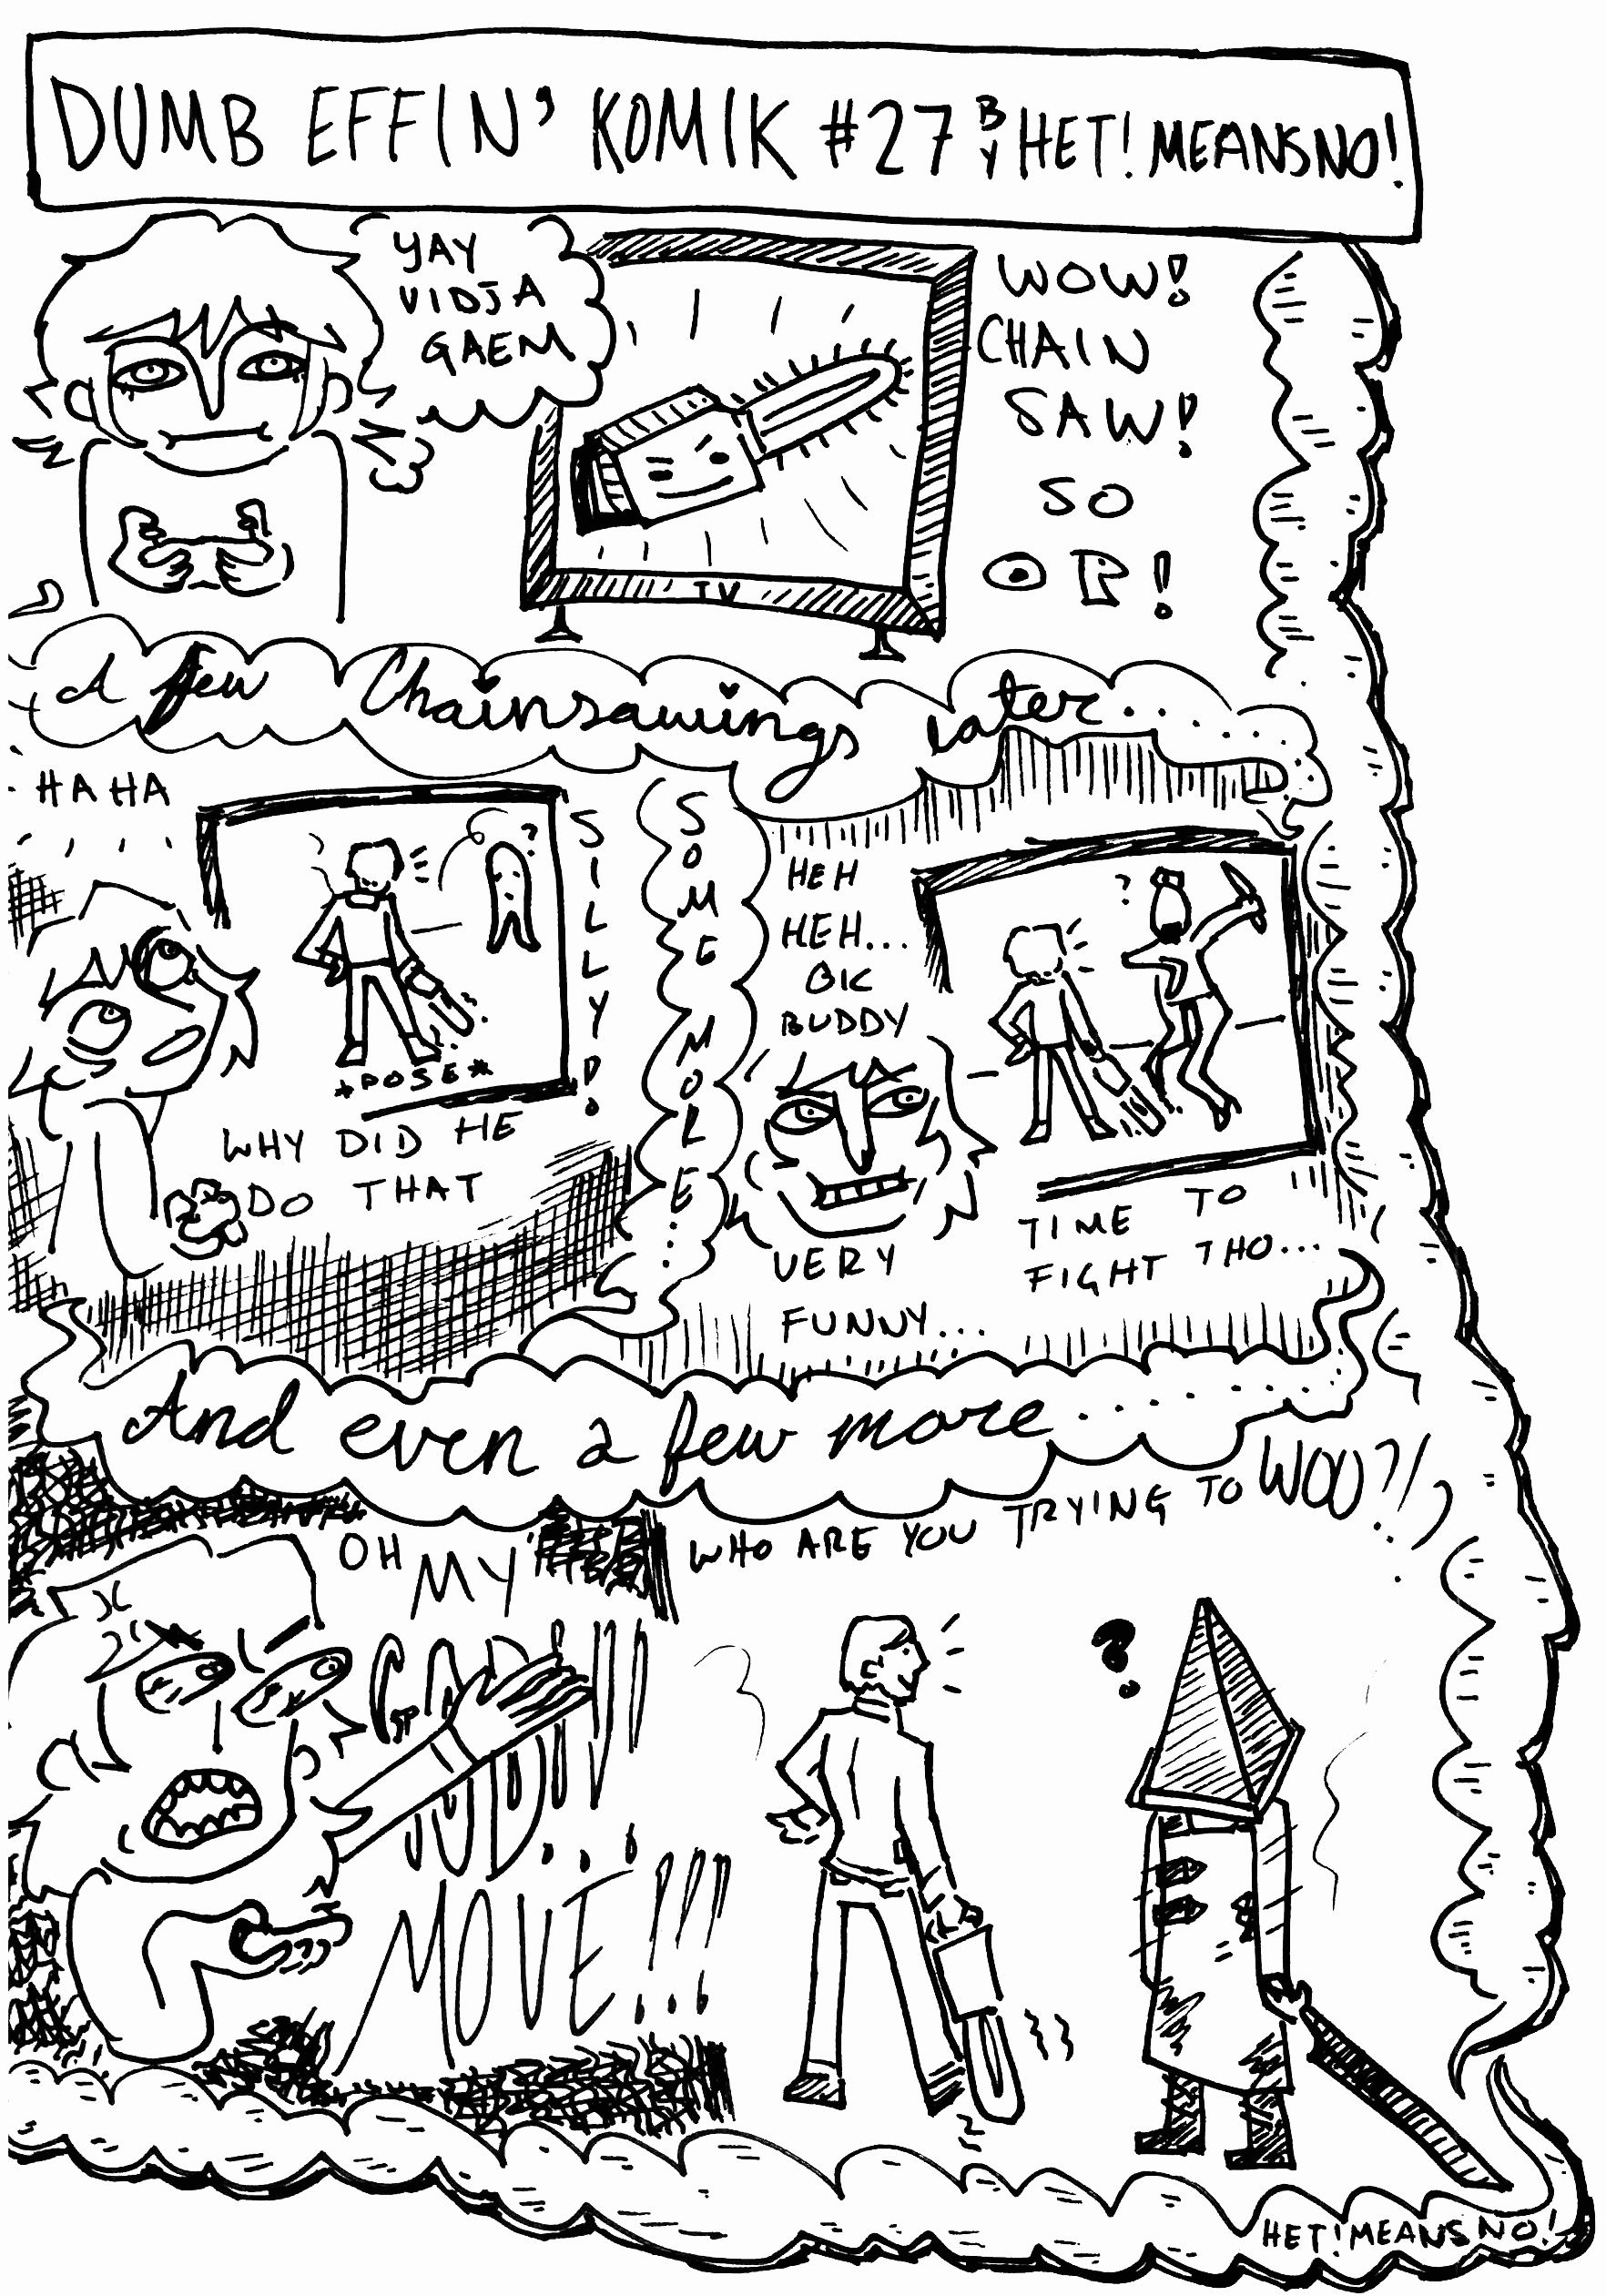 DUMB EFFIN' KOMIK #27 BY HET! MEANS NO!
YAY
VIDJA
GAEM
WOW!
CHAIN
SAW!
SO
OP!
TV
A few Chainsawings later......
HAHA
SILLY!
?
*POSE*
WHY DID HE
DO THAT
SOME MORE...
HEH
HEH...
OK
BUDDY
?
VERY
FUNNY...
TIME TO
FIGHT THO...
And even a few more..........
OH MY
WHO ARE YOU TRYING TO WOO?!
?
MOVE!!!
HET! MEANS NO!